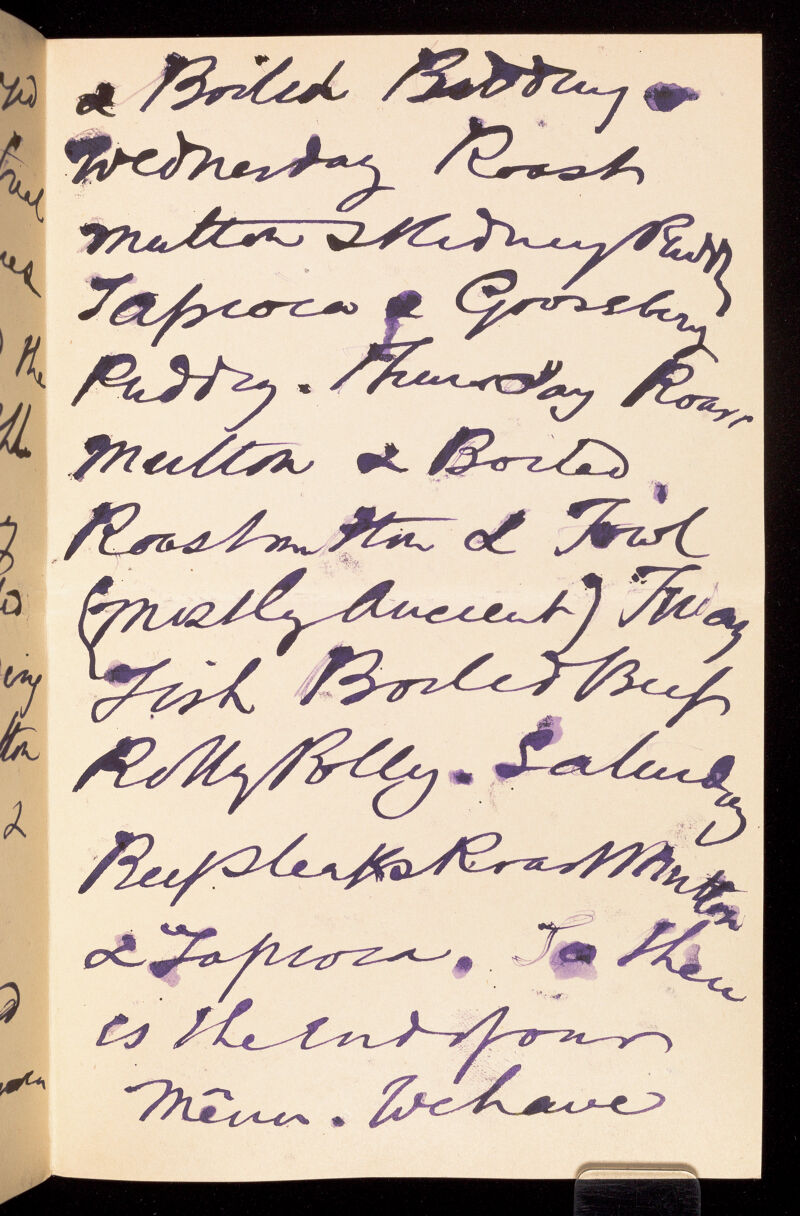 & Boiled Pudding
Wednesday Roast
Mutton & Kidney Puddg
Tapioca & Gooseberry
Puddg. Thursday Roast
Mutton & Boiled
Roast mutton & Fowl
(mostly Ancient) Friday
Fish Boiled Beef
Rolly Polly. Saturday
Beefsteaks Roast Mutton
& Tapioca. So then
is the end of our
Mēnu. We have
the